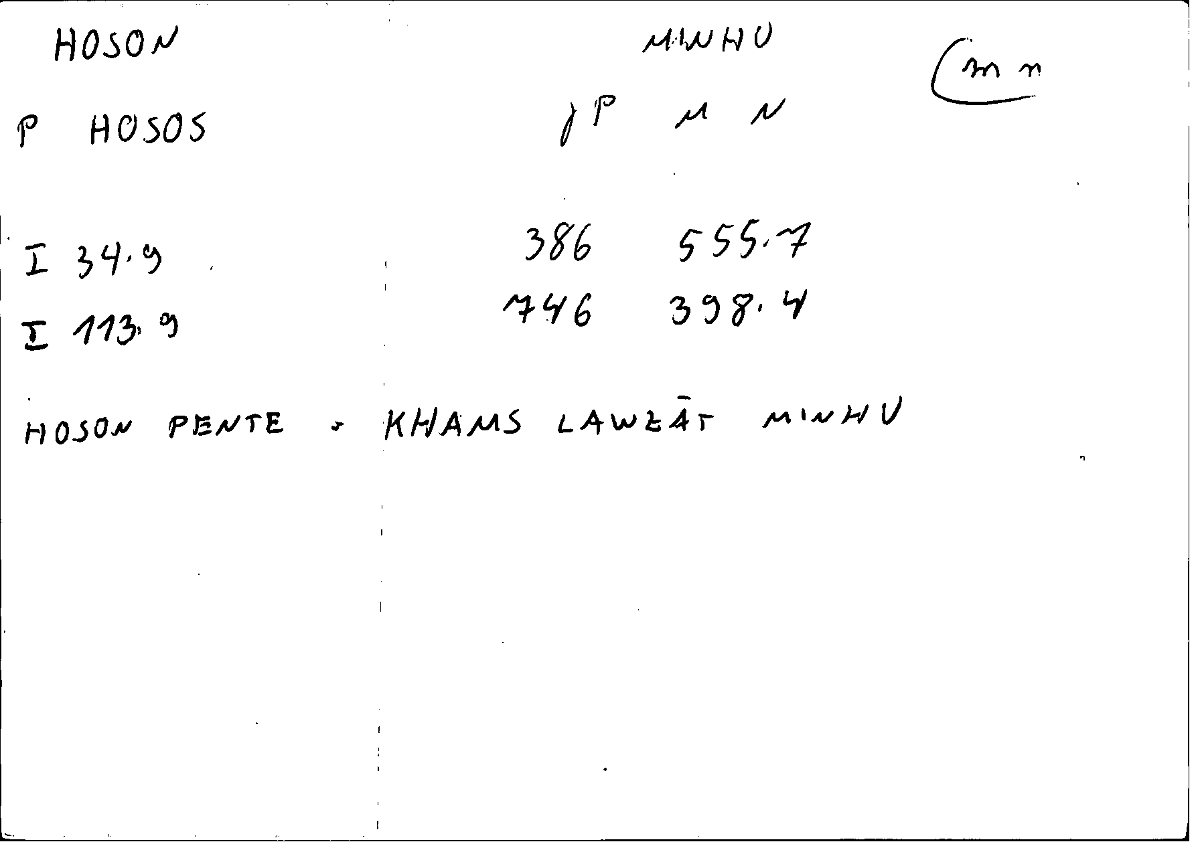 HOSON MINHU
(m n
P HOSOS γP M N
I 34.9 386 555.7
I 113.9 746 398.4
HOSON PENTE = KHAMS LAWZĀT MINHU